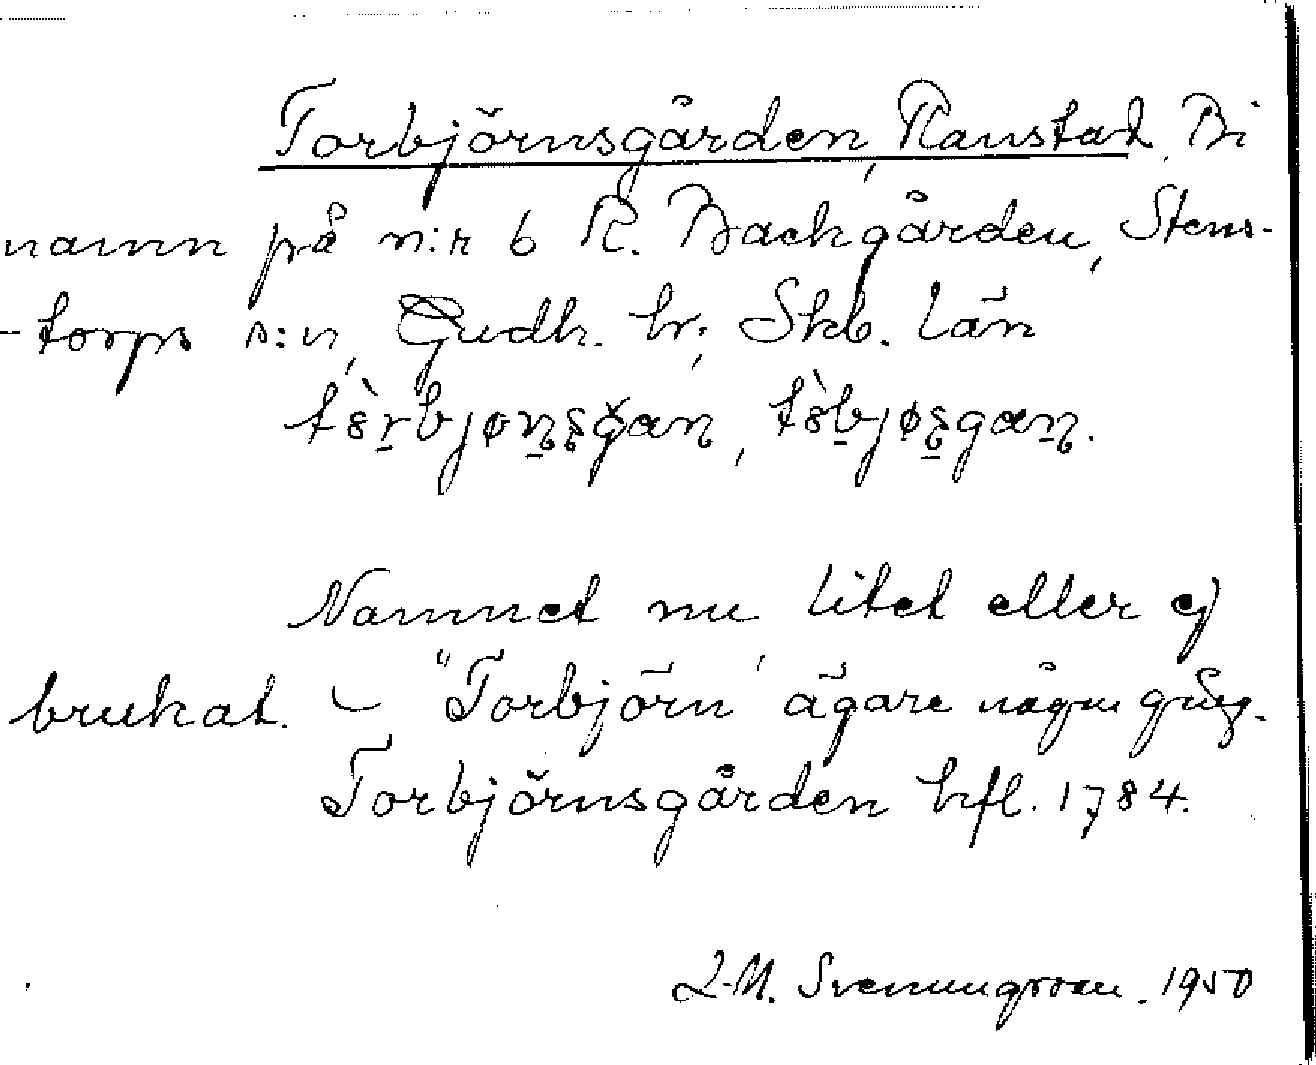 Torbjörnsgården, Ranstad, Bi
namn på n:r 6 R. Backgården, Stens-
-torps s:n, Gudh. hr, Skb. län
Namnet nu litet eller ej
brukat. – "Torbjörn" ägare någon gång.
Torbjörnsgården hfl. 1784.
Svenungsson. 1950